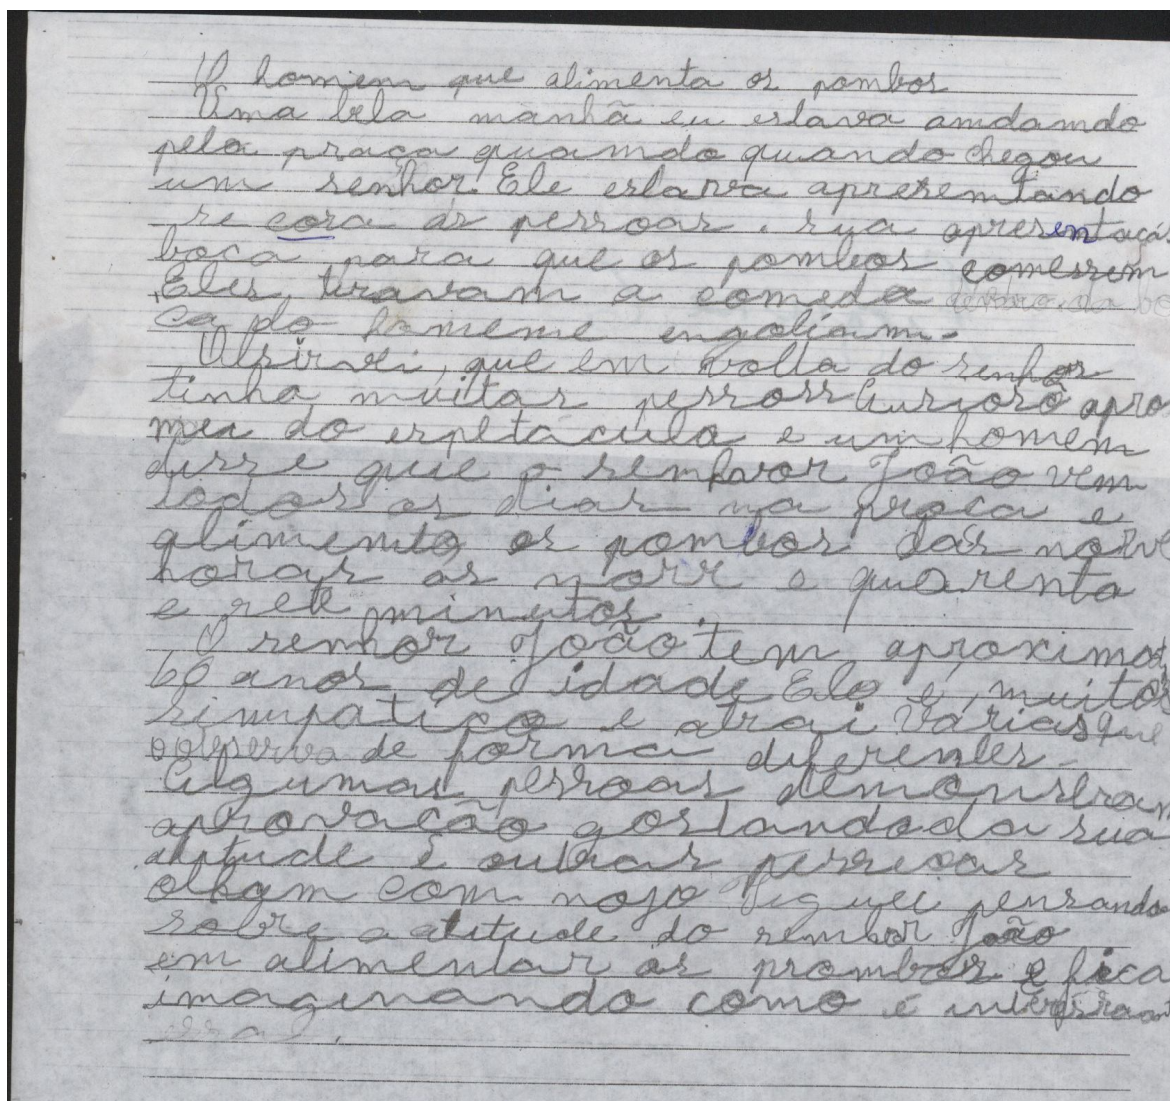 O homem que alimenta os pombos
Uma bela manhã eu estava andando
pela praça quamdo quando chegou
um senhor. Ele estava apresentando
se cora as pessoas. sua apresentaçã
boca para que os pombos comessem
Eles tiravam a comeda dentro da bo
ca do homeme engoliam.
Obsirvei, que em volta do senhor
tinha muitas pessoas curioso apro
mei do espetacula e um homem
disse que o senhor João vem
todos os dias na praça e
alimento os pombos das nove
horas as nove e quarenta
e sete minutos.
O senhor João tem aproximad
60 anos de idade Elo é muitos
simpatico e atrai varias que
observa de forma diferentes.
Algumas pessoas demonstram
aprovação gostandoda sua
atitude e outras pessoas
olham com nojo fiquei pensando
sobre a atitude do senhor João
em alimentar os prombos e fica
imaginando como é